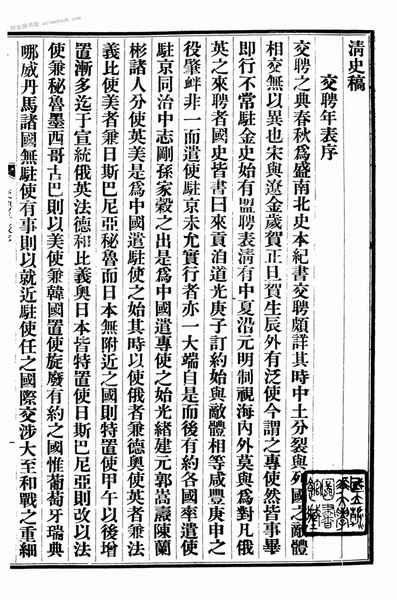 清史稿
交聘年表序
交聘之典春秋爲盛南北史本紀書交聘頗詳其時中土分裂與列國之敵體
相交無以異也宋與遼金歲賀正旦賀生辰外有泛使今謂之專使然皆事畢
即行不常駐金史始有盟聘表淸有中夏沿元明制視海內外莫與爲對凡俄
英之來聘者國史皆書曰來貢洎道光庚子訂約始與敵體相等咸豐庚申之
役肇衅非一而遣使駐京未允實行者亦一大端自是而後有約各國率遣使
駐京同治中志剛孫家穀之出是爲中國遣專使之始光緖建元郭嵩燾陳蘭
彬諸人分使英美是爲中國遣駐使之始其時以使俄者兼德奧使英者兼法
義比使美者兼日斯巴尼亞秘魯而日本無附近之國則特置使甲午以後增
置漸多迄于宣統俄英法德和比義奧日本皆特置使日斯巴尼亞則改以法
使兼秘魯墨西哥古巴則以美使兼韓國置使旋廢有約之國惟葡萄牙瑞典
哪威丹馬諸國無駐使有事則以就近駐使任之國際交涉大至和戰之重細